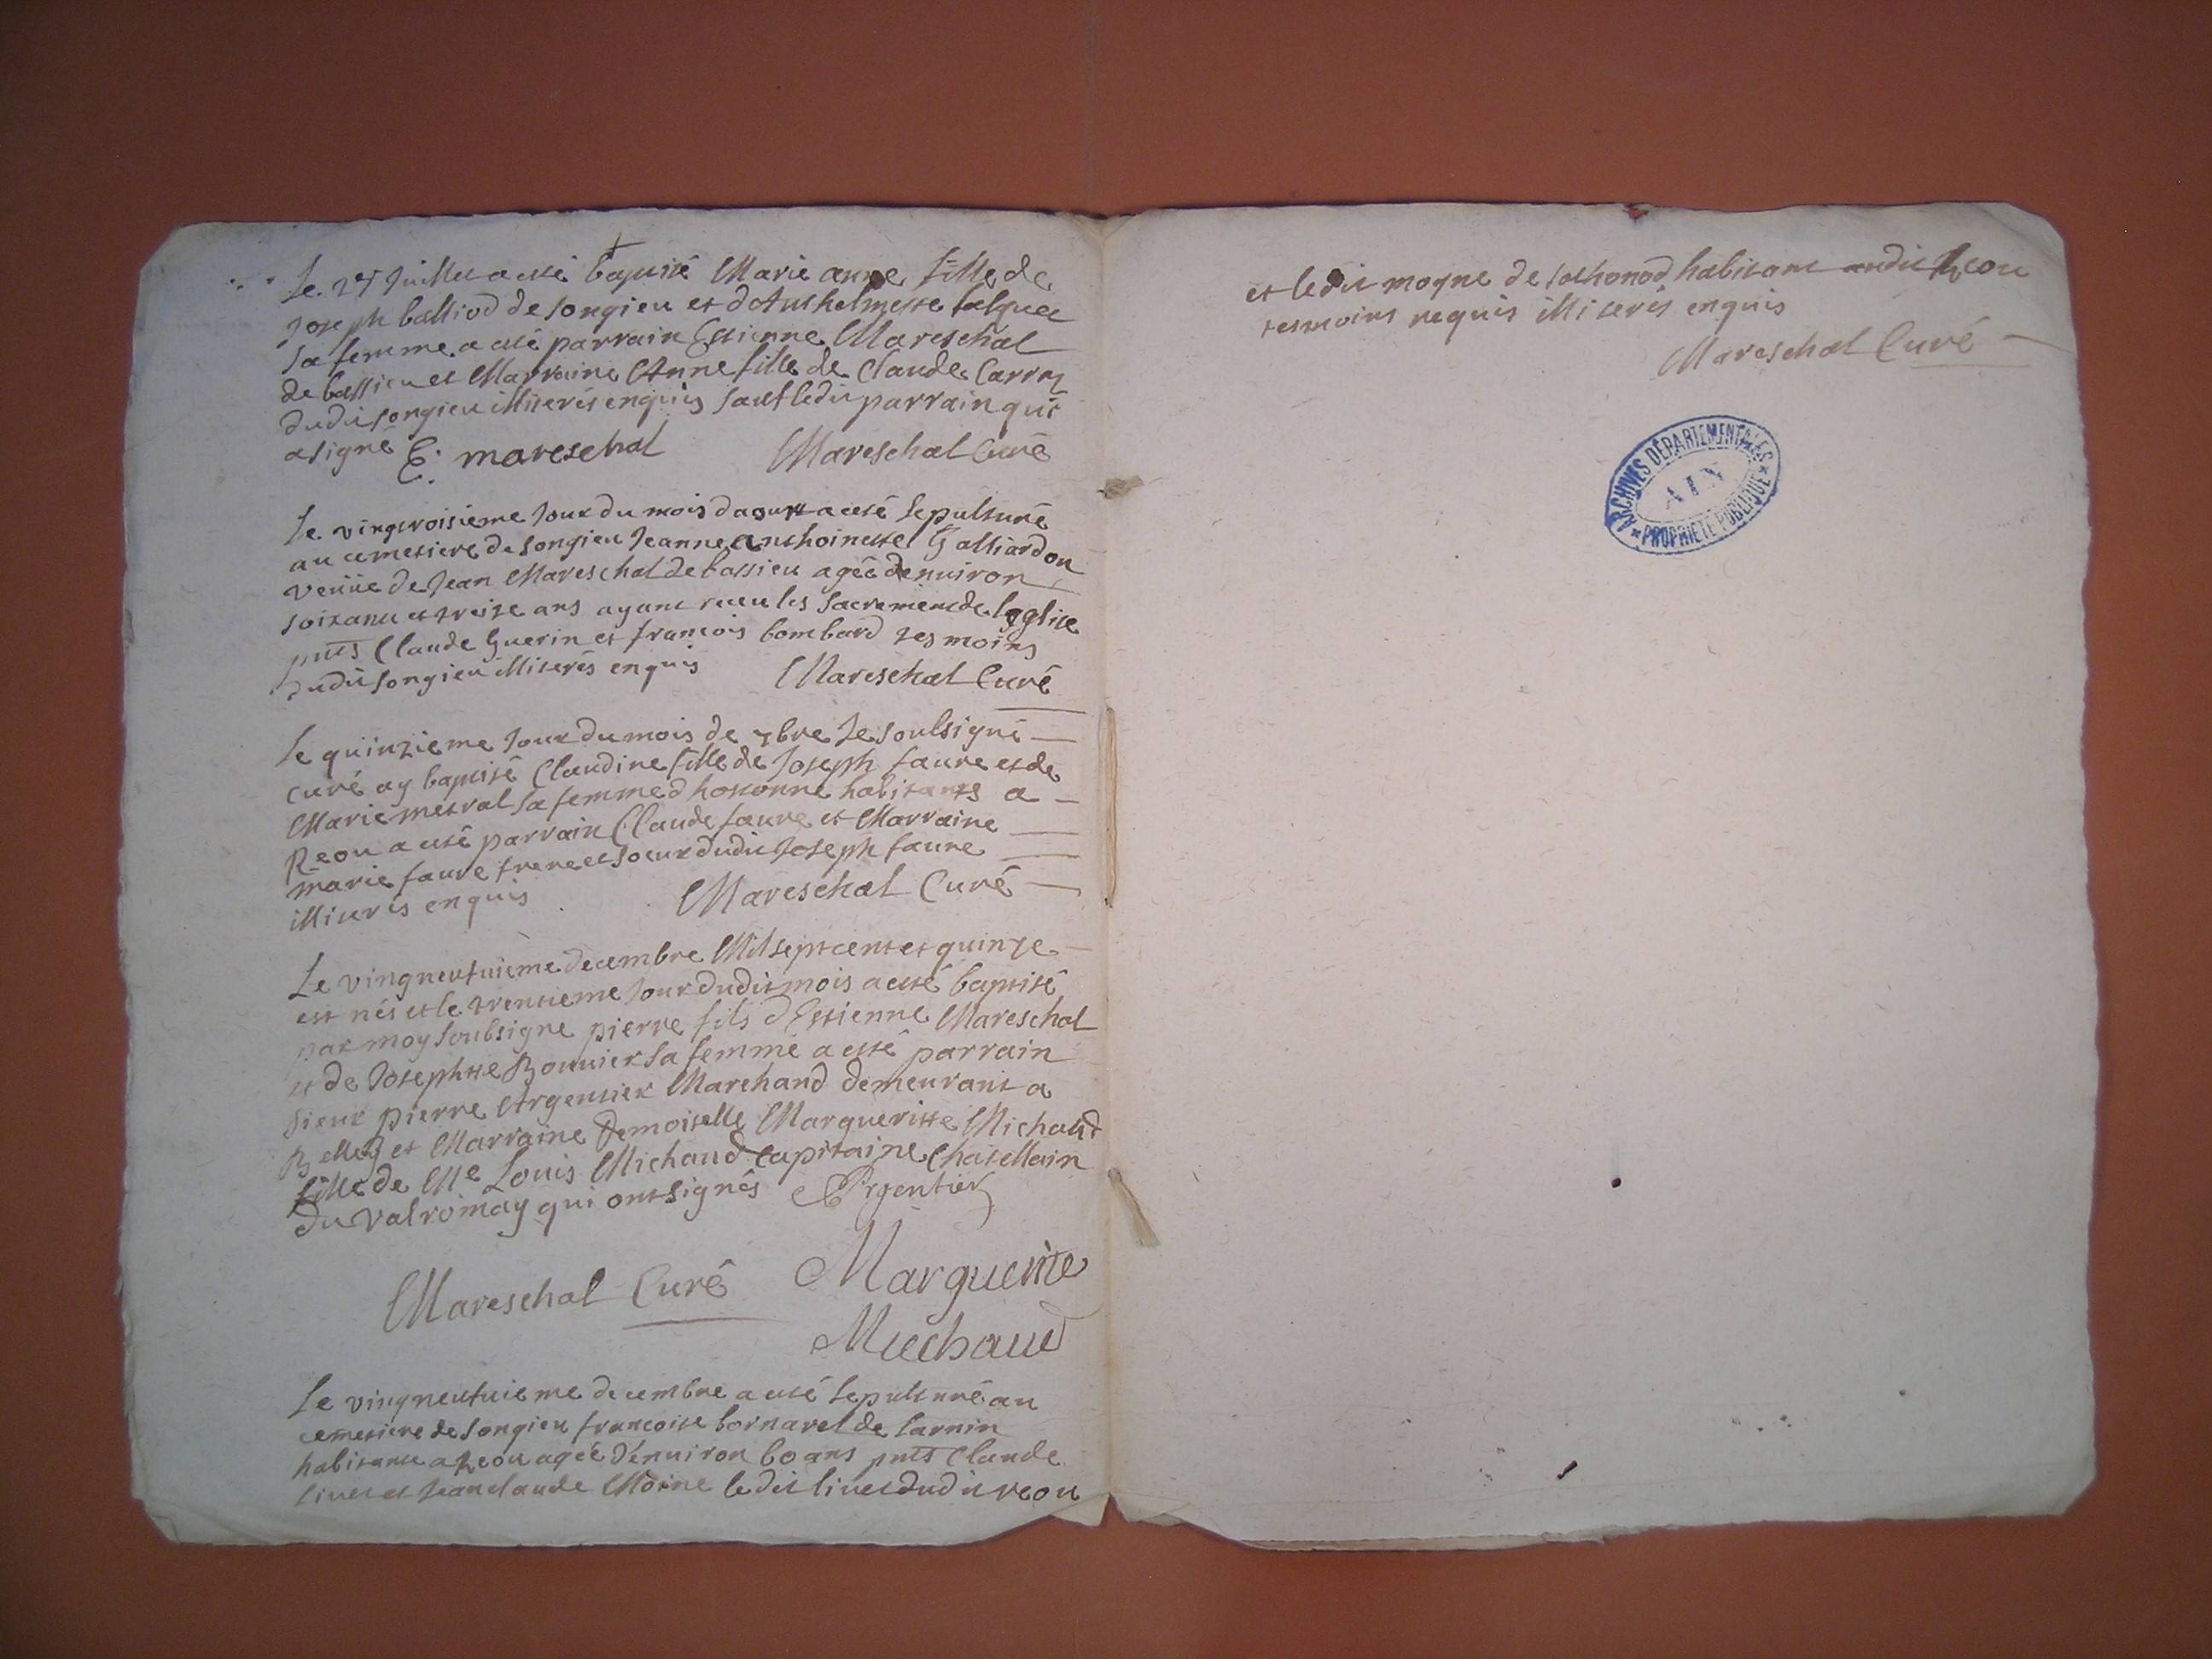 Le 27 Juillet a esté baptisé Marie anne fille de
Joseph balliod de songieu et d'Anthelmette
sa femme a esté parrain Estienne Mareschal
de bassieu et Marraine Anne fille de Claude Carraz
dudit songieu illiterés enquis sauf ledit parrain qui
a signé E. mareschal Mareschal Curé
Le vingtroisieme Jour du mois daoust a esté sepulturé
au cemetiere de songieu Jeanne anthoinette Galliardon
veuue de Jean Mareschal de bassieu agée denuiron
soixante et treize ans ayant receu les sacrements de leglise
pnts Claude Guerin et francois bombard tesmoins
dudit songieu illiterés enquis Mareschal Curé
Le quinzieme Jour du mois de 7bre Je soulsigné
curé ay baptisé Claudine fille de Joseph faure et de
Marie mestral sa femme d'hostonne habitants a
Reou a esté parrain Claude faure et Marraine
marie faure frere et soeur dudit Joseph faure
illiterés enquis Mareschal Curé
Le vingneufuieme decembre Mil sept cent et quinze
est nés et le trentieme Jour dudit mois a esté baptisé
par moy soubsigne pierre fils d'Estienne Mareschal
et de Josephte Bouuier sa femme a esté parrain
sieur pierre Argentier Marchand demeurant a
Belley et Marraine Demoiselle Margueritte Michaud
fille de Me Louis Michaud Capitaine Chatellain
du valromay qui ont signés Argentier
Mareschal Curé Marguerite
Miechaud
Le vingneufuieme decembre a esté sepulturé au
cemetiere de songieu francoise bornarel de
habitante a Reou agée d'enuiron 60 ans pnts Claude
liuet et Jean claude Moine ledit liuet dudit reou
et ledit moyne de sothonod habitant audit Reou
tesmoins requis illiterés enquis
Mareschal Curé
ARCHIVES DÉPARTEMENTALES
AIN
PROPRIÉTÉ PUBLIQUE